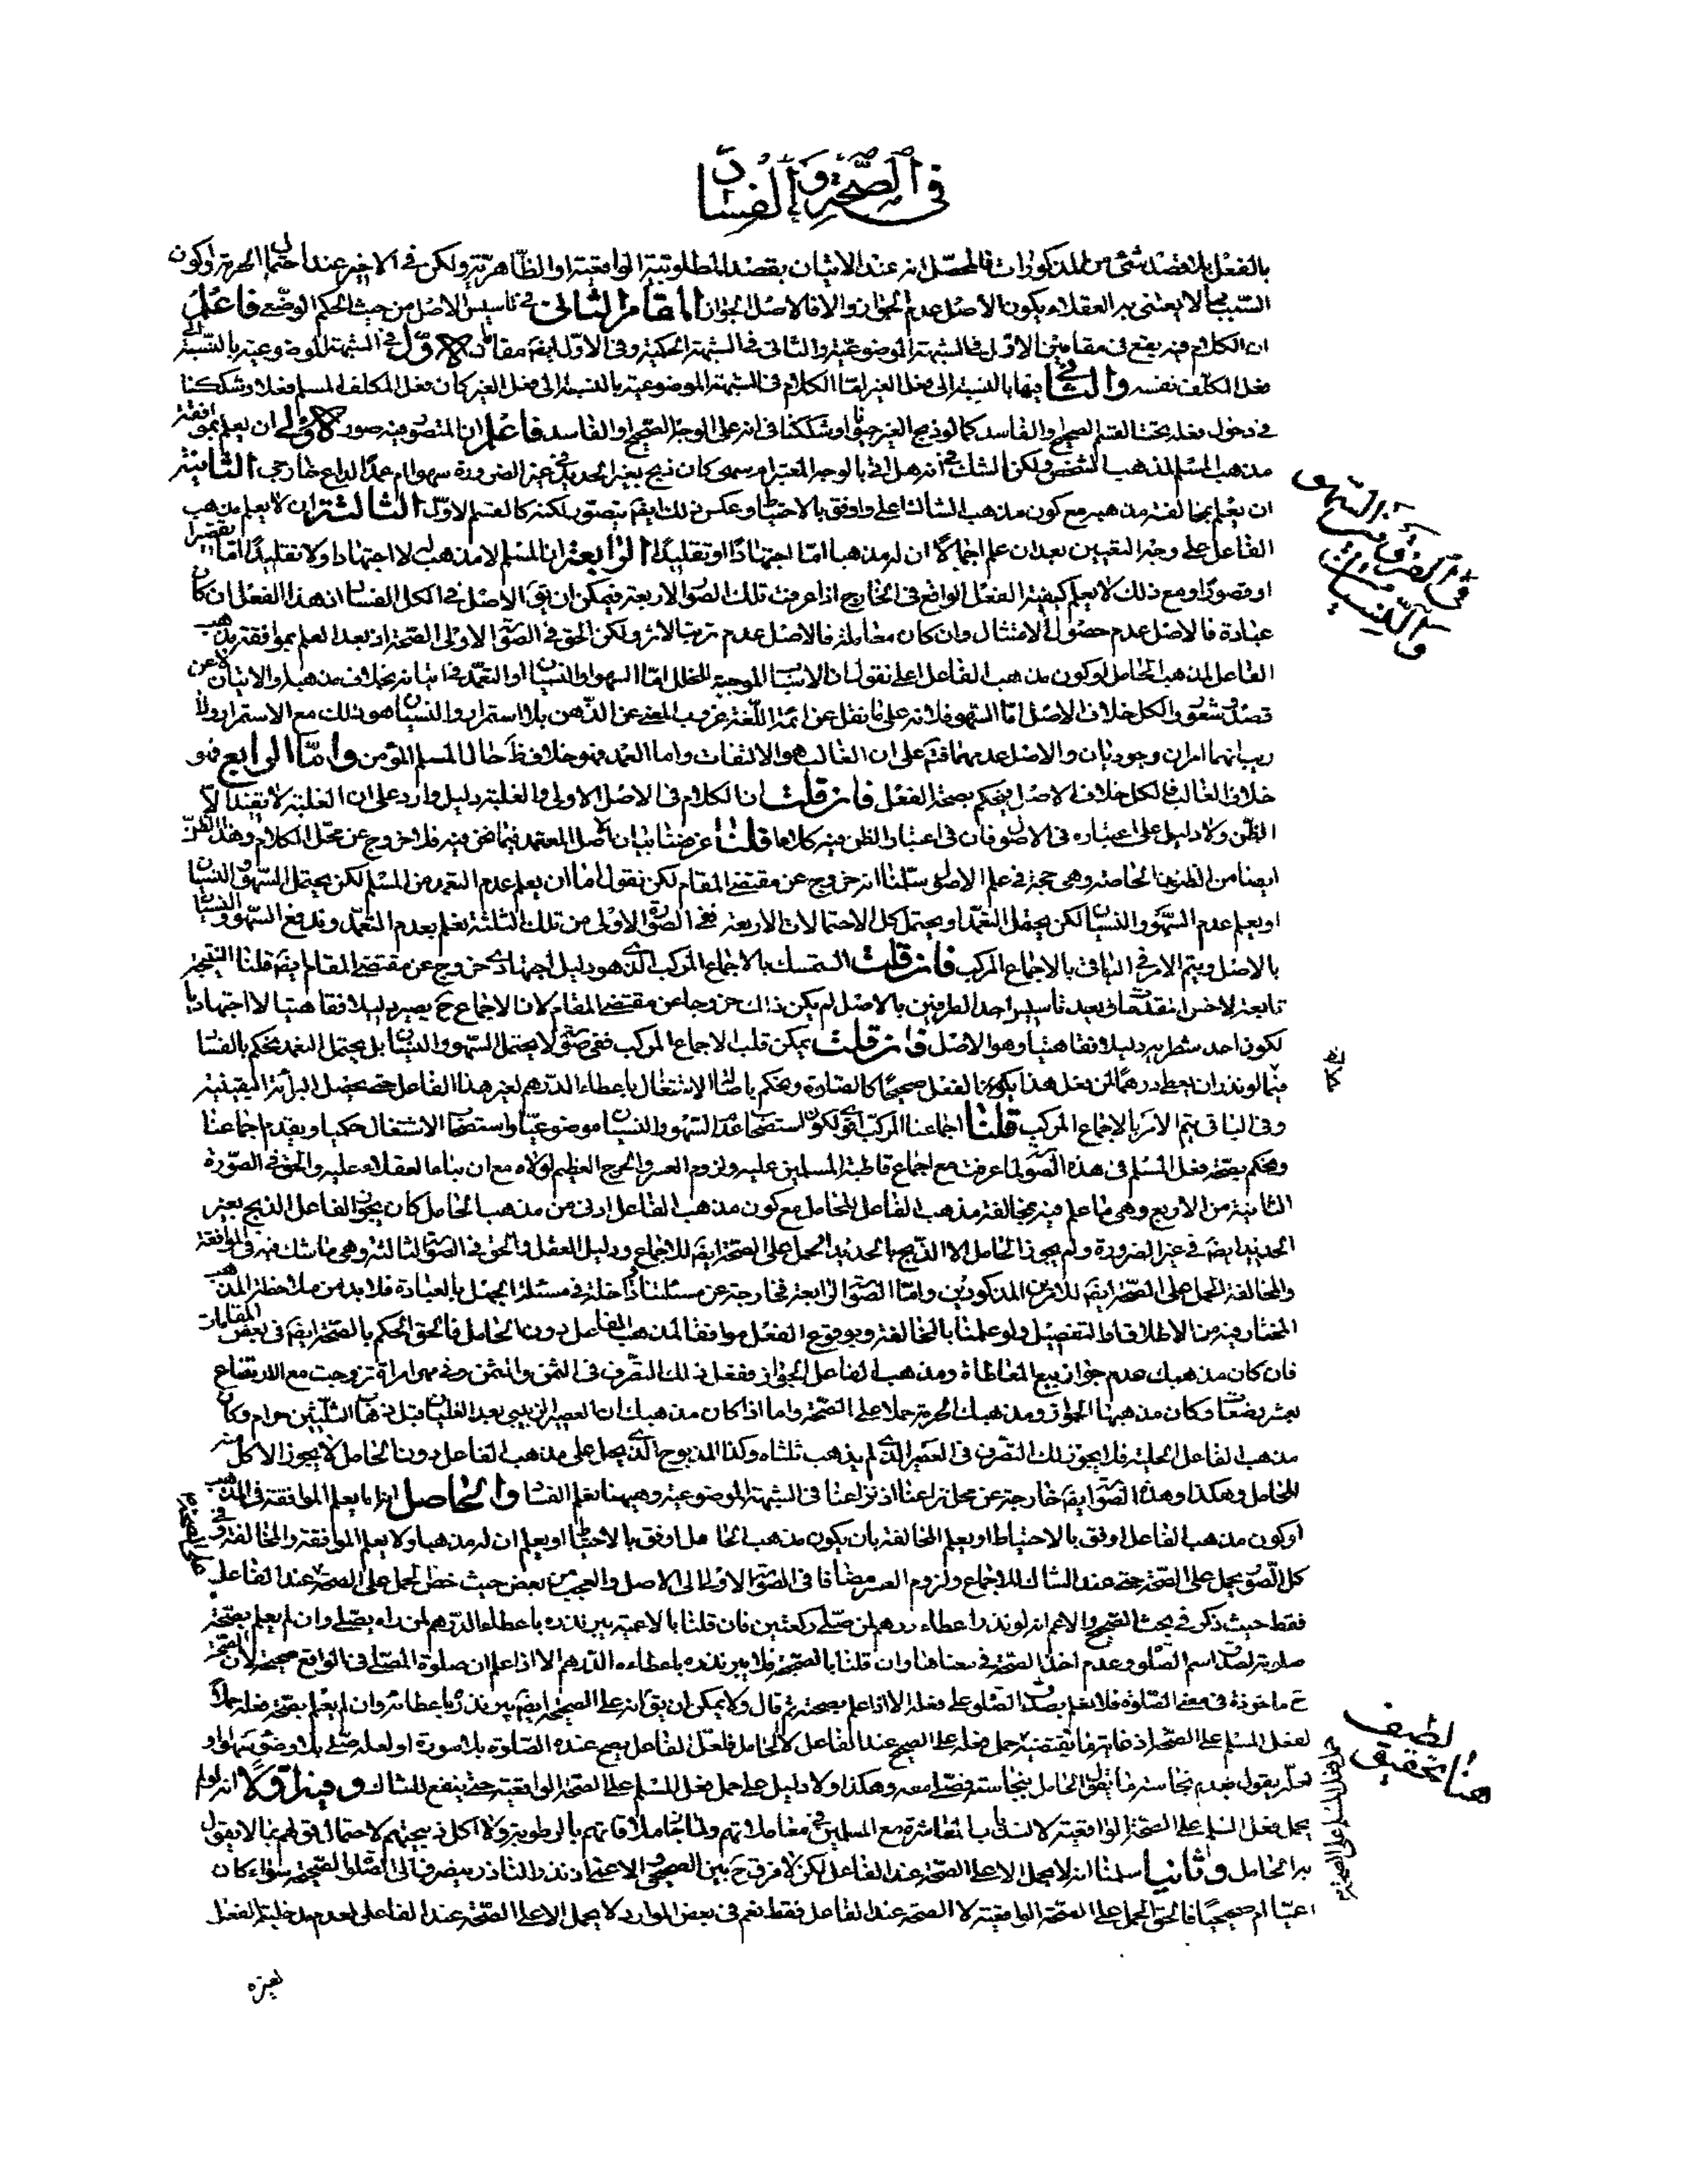 في الصحة والفساد
بالفعل بلا قصد شئ من المذكورات فالمحصل انه عند الاتيان بقصد المطلوبية الواقعية او الظاهرية ولكن في الاخير عند احتمال الحرمة وكون
السبب مما لا يعتنى به العقلاء يكون الاصل عدم الجواز والا فالاصل الجواز المقام الثاني في تاسيس الاصل من حيث الحكم الوضعي فاعلم
ان الكلام فيه يقع في مقامين الاول في الشبهة الموضوعية والثاني في الشبهة الحكمية وفي الاول ايضم مقامان الاول في الشبهة الموضوعية بالنسبة الى
فعل المكلف نفسه والثاني فيها بالنسبة الى فعل الغير اما الكلام في الشبهة الموضوعية بالنسبة الى فعل الغير كان فعل المكلف المسلم فعلا وشككنا
في دخول فعله تحت القسم الصحيح والفاسد كما لو ذبح الغير حيوانا وشككنا في انه على الوجه الصحيح او الفاسد فاعلم ان المتصور فيه صور الاولى ان يعلم بموافقة
مذهب المسلم لمذهب الشخص ولكن الشك في انه هل اتى بالوجه المعتبر ام سهى كان ذبح بغير الحديد في غير الضرورة سهوا ام عمدا لداع خارجي الثانية
ان يعلم بمخالفة مذهبه مع كون مذهب الشاك اعلى واوفق بالاحتياط وعكس ذلك ايضم يتصور لكنه كالقسم الاول الثالثة ان لا يعلم مذهب
الفاعل على وجه التعيين بعد ان علم اجمالا ان له مذهبا اما اجتهادا او تقليدا الرابعة ان المسلم لا مذهب له لا اجتهادا ولا تقليدا اما تقصيرا
او قصورا ومع ذلك لا يعلم كيفية الفعل الواقع في الخارج اذا عرفت تلك الصور الاربعة فيمكن ان يقم الاصل في الكل الفساد اذ هذا الفعل ان كان
عبادة فالاصل عدم حصول الامتثال وان كان معاملة فالاصل عدم ترتب الاثر ولكن الحق في الصورة الاولى الصحة اذ بعد العلم بموافقة مذهب
الفاعل لمذهب الحامل او كون مذهب الفاعل اعلى نقول ان الاسباب الموجبة للخلل اما السهو او النسيان او التعمد في اتيانه بخلاف مذهبه او الاتيان لا عن
قصد وشعور والكل خلاف الاصل اما السهو فلانه على ما نقل عن ائمة اللغة عزوب المعنى عن الذهن بلا استمرار والنسيان هو ذلك مع الاستمرار ولا
ريب انهما امران وجوديان والاصل عدمهما فتم على ان الغالب هو الالتفات واما العمد فهو خلاف ظ حال المسلم المؤمن واما الرابع فهو
خلاف الغالب فالكل خلاف الاصل فيحكم بصحة الفعل فان قلت ان الكلام في الاصل الاولى والغلبة دليل وارد على ان الغلبة لا تفيد الا
الظن ولا دليل على اعتباره في الاصول فان في اعتبار الظن فيه كلاما قلت غرضنا بيان الاصل المعتمد فيما نحن فيه فلا خروج عن محل الكلام وهذا الظن
ايضا من الظنون الخاصة وهي حجة في علم الاصول سلمنا انه خروج عن مقتضى المقام لكن نقول اما ان يعلم عدم التعمد من المسلم لكن يحتمل السهو والنسيان
او يعلم عدم السهو والنسيان لكن يحتمل التعمد او يحتمل كل الاحتمالات الاربعة ففي الصورة الاولى من تلك الثلثة نعلم بعدم التعمد وندفع السهو والنسيان
بالاصل ويتم الامر في الباقي بالاجماع المركب فان قلت التمسك بالاجماع المركب الذي هو دليل اجتهادي خروج عن مقتضى المقام ايضم قلنا النتيجة
تابعة لاخس المقدمتين فبعد تاسيس احد الطرفين بالاصل لم يكن ذلك خروجا عن مقتضى المقام لان الاجماع ح يصير دليلا فقاهتيا لا اجتهاديا
لكون احد شطريه دليلا فقاهتيا وهو الاصل فان قلت يمكن قلب الاجماع المركب ففي صورة لا يحتمل السهو والنسيان بل يحتمل العمد نحكم بالفساد
فيما لو نذر ان يعطى درهما لمن فعل هذا بكون الفعل صحيحا كالصلوة ونحكم باصالة الاشتغال باعطاء الدرهم لغير هذا الفاعل حتى يحصل البرائة اليقينية
وفي الباقي يتم الامر بالاجماع المركب قلنا اجماعنا المركب اقوى لكون استصحاب عدم السهو والنسيان موضوعيا واستصحاب الاشتغال حكميا ويقدم اجماعنا
ونحكم بصحة فعل المسلم في هذه الصور لما عرفت مع اجماع قاطبة المسلمين عليه ولزوم العسر والحرج العظيم لولاه مع ان بناء العقلاء عليه والحق في الصورة
الثانية من الاربع وهي ما علم فيه مخالفة مذهب الفاعل للحامل مع كون مذهب الفاعل ادنى من مذهب الحامل كان يجوز الفاعل الذبح بغير
الحديد ايضم في غير الضرورة ولم يجوز الحامل الا الذبح بالحديد الحمل على الصحة ايضم للاجماع ودليل العقل والحق في الصورة الثالثة وهي ما شك فيه في الموافقة
والمخالفة الحمل على الصحة ايضم للامرين المذكورين واما الصورة الرابعة فخارجة عن مسئلتنا داخلة في مسئلة الجهل بالعبادة فلابد من ملاحظة المذهب
المختار فيه من الاطلاق او التفصيل ولو علمنا بالمخالفة وبوقوع الفعل موافقا لمذهب الفاعل دون الحامل فالحق الحكم بالصحة ايضم في بعض المقامات
فان كان مذهبك عدم جواز بيع المعاطاة ومذهب الفاعل الجواز ففعل ذلك التصرف في الثمن والمثمن ومن امراة تزوجت مع الارتضاع
بعشر رضعات وكان مذهبها الجواز ومذهبك الحرمة حملا على الصحة واما اذا كان مذهبك ان العصير الزبيبي بعد الغليان قبل ذهاب الثلثين حرام وكان
مذهب الفاعل الحلية فلا يجوز لك التصرف في العصير الذي لم يذهب ثلثاه وكذا المذبوح الذي يحل على مذهب الفاعل دون الحامل لا يجوز الاكل منه
للحامل وهكذا وهذه الصور ايضم خارجة عن محل نزاعنا اذ نزاعنا في الشبهة الموضوعية وهيهنا نعلم الفساد والحاصل انه اما يعلم الموافقة في المذهب
او كون مذهب الفاعل اوفق بالاحتياط او يعلم المخالفة بان يكون مذهب الحامل اوفق بالاحتياط او يعلم ان له مذهبا ولا يعلم الموافقة والمخالفة وفي
كل الصور يحمل على الصحة حتى عند الشاك للاجماع ولزوم العسر مضافا في الصورة الاولى الى الاصل والعجب من بعض حيث خص الحمل على الصحة عند الفاعل
فقط حيث ذكر في بحث الصحيح والاعم انه لو نذر اعطاء درهم لمن صلى ركعتين فان قلنا بالاعمية يبر نذره باعطاء الدرهم لمن راه يصلي وان لم يعلم بصحة
صلوته لصدق اسم الصلوة وعدم اخذ الصحة في معناها وان قلنا بالصحيحة فلا يبر نذره باعطاءه الدرهم الا اذا علم ان صلوة المصلي في الواقع صحيحة لان الصحة
ح ماخوذة في معنى الصلوة فلا نعلم بصدق الصلوة على فعله الا اذا علم بصحته ثم قال ولا يمكن ان يقم انه على الصحيحة ايضم يبر نذره باعطائه وان لم يعلم بصحة فعله حملا
لفعل المسلم على الصحة اذ غاية ما يقتضيه حمل فعله على الصحيح عند الفاعل لا الحامل فلعل الفاعل يصح عنده الصلوة بلا سورة او لعله صلى بلا وضوء سهوا او
لعله يقول بعدم نجاسة ما يقول الحامل بنجاسته فصلى معه وهكذا ولا دليل على حمل فعل المسلم على الصحة الواقعية حتى ينفع للشاك وفيه اولا انه لو لم
يحمل فعل المسلم على الصحة الواقعية لانسد باب المعاشرة مع المسلمين في معاملاتهم ولما جاز ملاقاتهم بالرطوبة ولا اكل ذبيحتهم لاحتمال قولهم بما لا يقول
به الحامل وثانيا سلمنا انه لا يحمل الا على الصحة عند الفاعل لكن لا فرق ح بين الصحيحي والاعمي اذ نذر الناذر ينصرف الى الصلوة الصحيحة سواء كان
اعميا ام صحيحيا فالحق الحمل على الصحة الواقعية لا الصحة عند الفاعل فقط نعم في بعض الموارد لا يحمل الا على الصحة عند الفاعل لعدم مدخلية الفعل
لغيره
في الفرق بين السهو
والنسيان
هنا تحقيق
لطيف